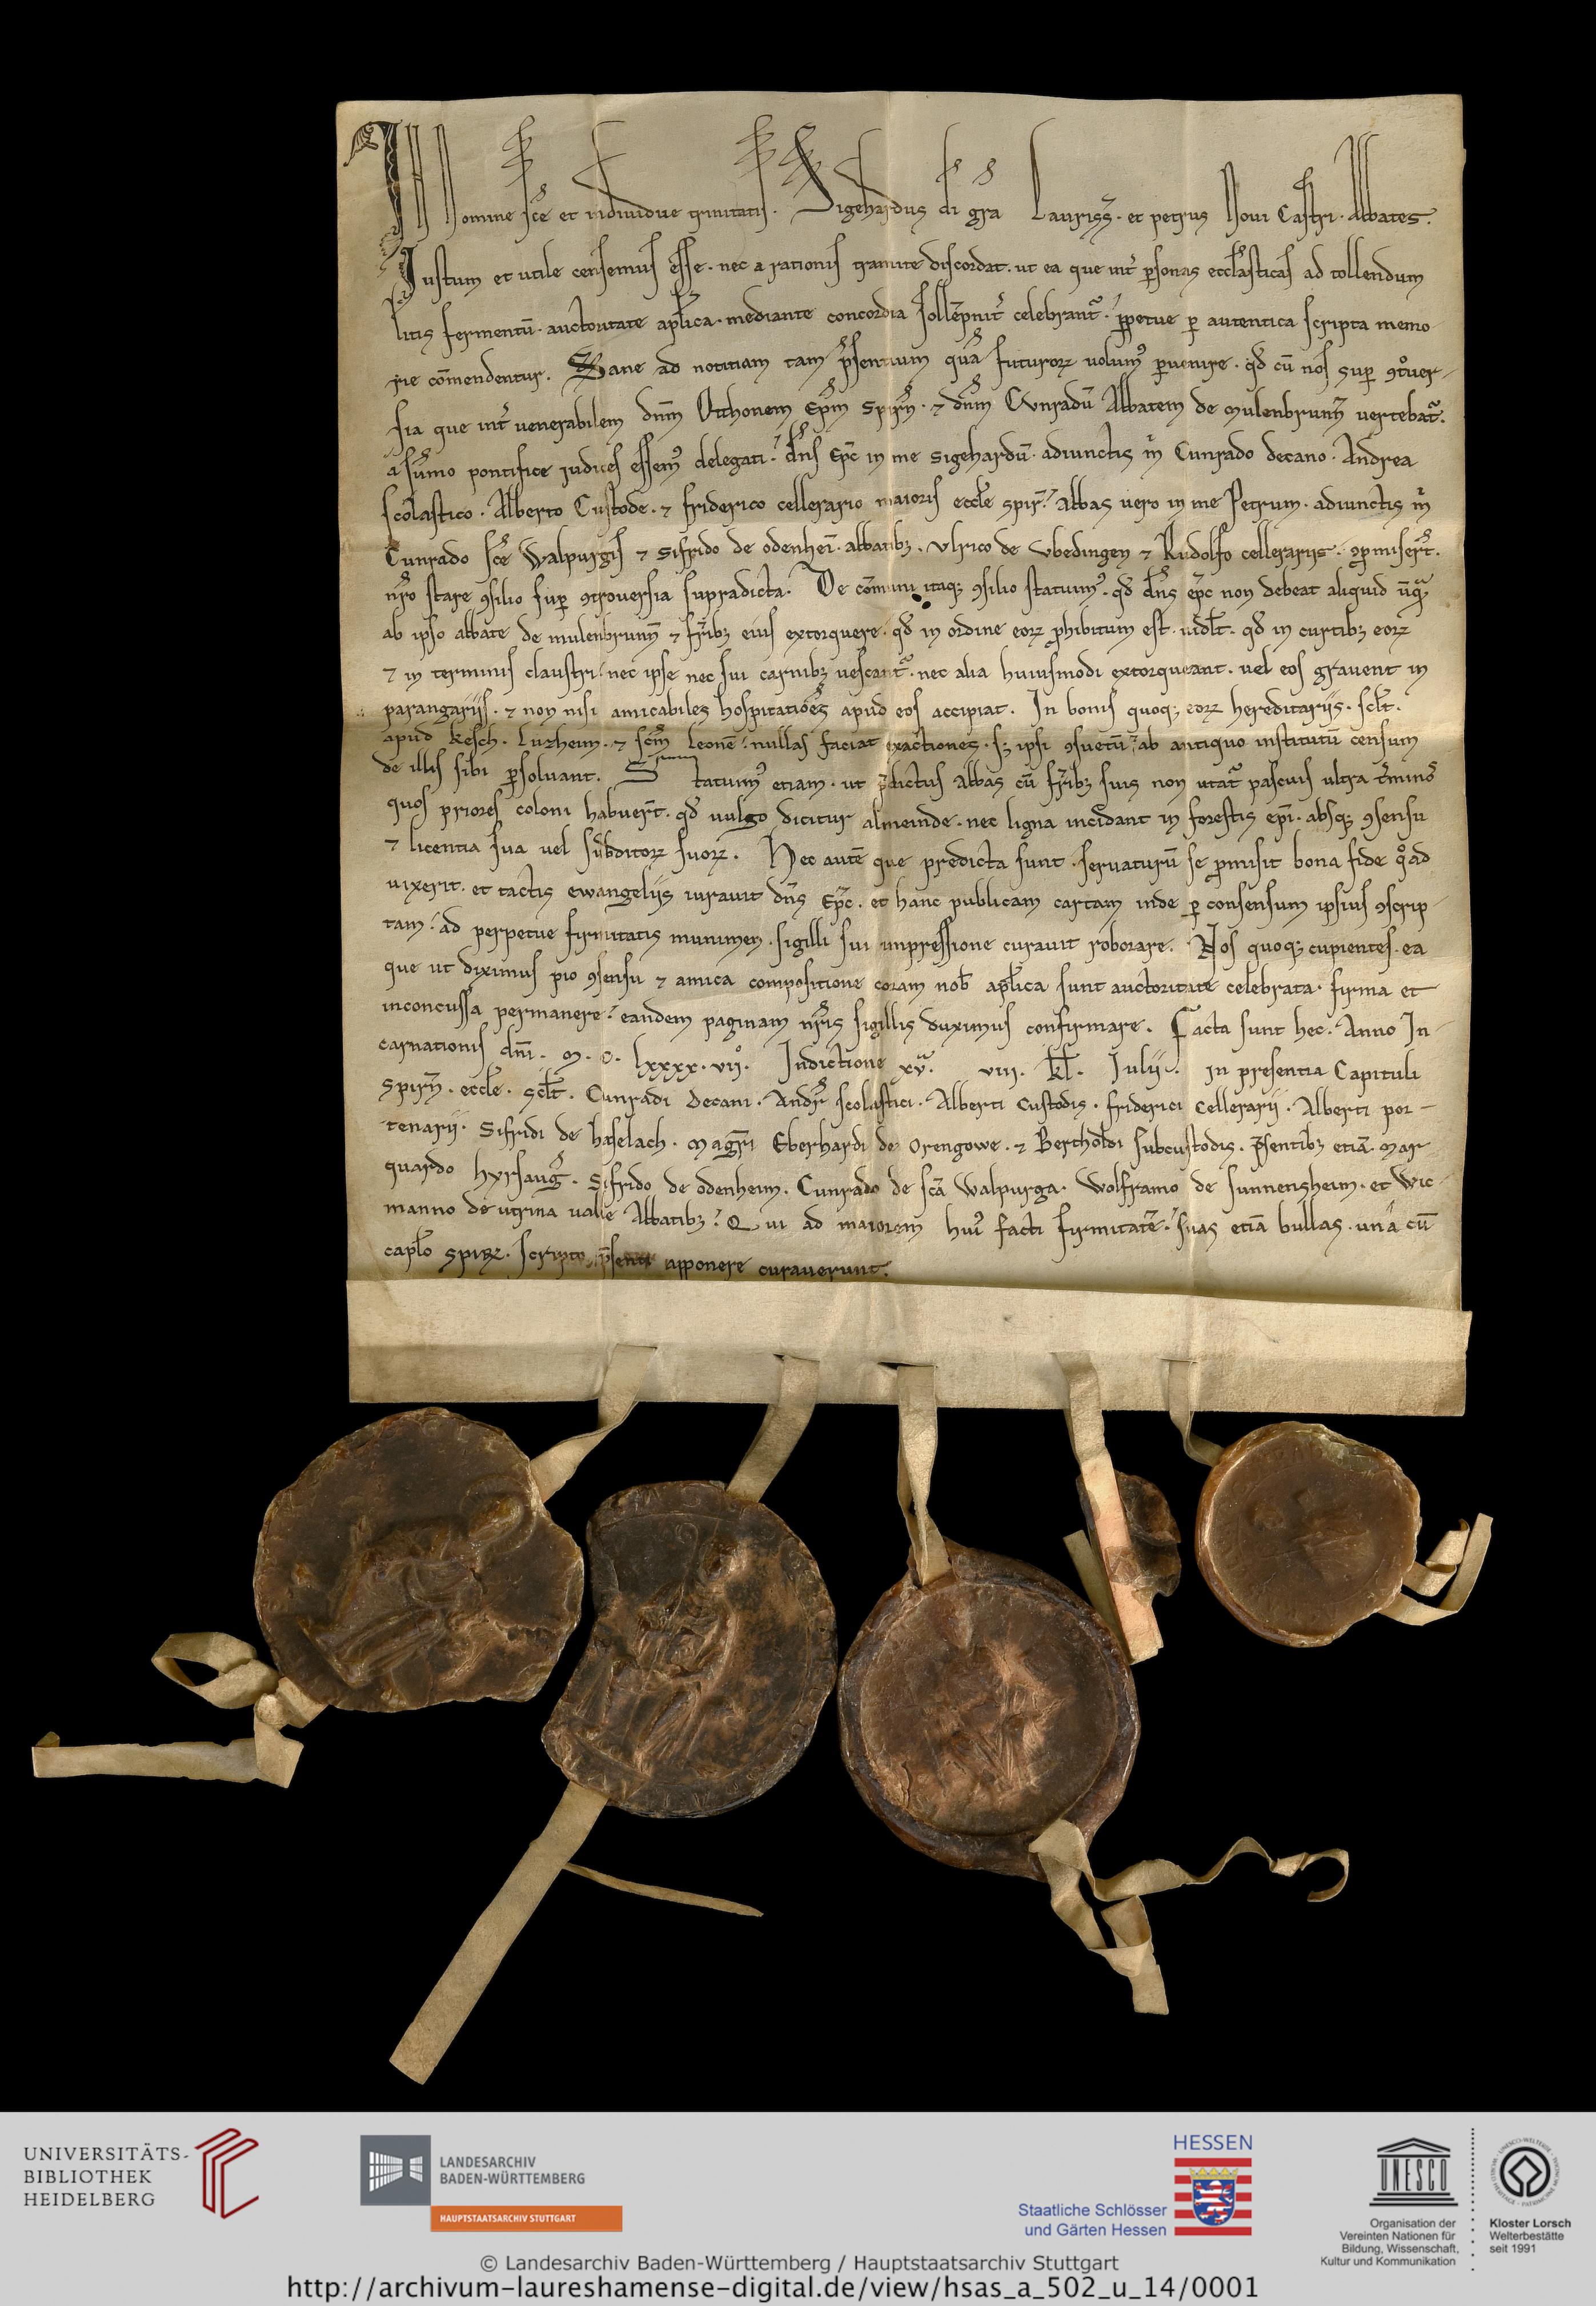 IN Nomine sc̄e et indiuidue trinitatis. Sigehardus di gr̄a Laurissꝫ. et petrus Noui Castri. Abbates.
Justum et utile censemus esse. nec a rationis tramite discordat. ut ea que int̄ ꝑsonas eccl̄asticas ad tollendum
litis fermentū. auctoritate apl̄ica. mediante concordia sollēpnit̄ celebrant᷑. ꝑpetue ꝑ autentica scripta memo-
rie cōmendentur. Sane ad notitiam tam p̄sentium quā futuroꝝ uolumꝰ ꝑuenire. qd̄ cū nos sup̄ ꝯtͦuer-
sia que int̄ venerabilem dn̄m Otthonem Ep̄m Spirn̄. ⁊ dn̄m Cvnradū Abbatem de Mulenbrunn̄ uertebat᷑.
a sūmo pontifice iudices essemꝰ delegati. dn̄s Ep̄c in me Sigehardū. adiunctis m̄ Cunrado decano. Andrea
scolastico. Alberto Custode. ⁊ friderico cellerario maioris eccl̄e spir̄. abbas uero in me Petrum. adiunctis m̄
Cunrado sc̄e Walpurgis ⁊ Sifrido de odenhei. abbatibꝫ. Vlrico de Vbedingen ⁊ Rudolfo cellerariis. ꝯp̱miser̄t.
nr̄o stare ꝯsilio sup̄ ꝯtrouersia supradicta. De cōmuni itaqꝫ ꝯsilio statuimꝰ. qd̄ dn̄s ep̄c non debeat aliquid ūqᷓ
ab ipso abbate de mulenbrunn̄ ⁊ fr̄ibꝫ eius extorquere. qd̄ in ordine eoꝝ ꝓhibitum est. uidel̄t. qd̄ in curtibꝫ eoꝝ
⁊ in terminis claustri. nec ipse nec sui carnibꝫ uescant᷑. nec alia huiusmodi extorqueant. uel eos grauent in
parangariis. ⁊ non nisi amicabiles hospitatiōes apud eos accipiat. In bonis quoqꝫ eoꝝ hereditariis. scl̄t.
apud Kesch. Luzheim. ⁊ scm̄ Leonē. nullas faciat exactiones. sꝫ ipsi ꝯsuetū. ab antiquo institutū censum
de illis sibi ꝑsoluant. Statuimꝰ etiam. ut p̄dictus abbas cū fr̄ibꝫ suis non utat᷑ pascuis ultra t̄minos
quos priores coloni habuer̄t. qd̄ uulgo dicitur almeinde. nec ligna incidant in forestis ep̄i. absqꝫ ꝯsensu
⁊ licentia sua uel subditoꝝ suoꝝ. Hec autē que predicta sunt. seruaturū se ꝓmisit bona fide qͦad
uixerit. et tactis ewangeliis iurauit dn̄s Ep̄c. et hanc publicam cartam inde ꝑ consensum ipsius ꝯscrip-
tam. ad perpetue firmitatis munimen. sigilli sui impressione curauit roborare. Nos quoqꝫ cupientes. ea
que ut diximus pio ꝯsensu ⁊ amica compositione coram nob̄ apl̄ica sunt auctoritate celebrata. firma et
inconcussa permanere. eandem paginam nr̄is sigillis duximus confirmare. Facta sunt hec. Anno In-
carnationis dn̄i. M. C. lxxxx. vii°. Indictione xvᵃ. viii. kl̄. Julii. in presentia Capituli
Spirn̄. eccl̄e. scl̄t. Cunradi Decani. Andr̄ scolastici. Alberti Custodis. friderici Cellerarii. Alberti por-
tenarii. Sifridi de haselach. Magr̄i Eberhardi de Orengowe. ⁊ Bertholdi subcustodis. p̄sentibꝫ etiā. Mar
quardo hyrsaug̅. Sifrido de odenheim. Cunrado de sc̄a Walpurga. Wolframo de sunnensheim. et Wic-
manno de utrina ualle Abbatibꝫ. Qui ad maiorem huiꝰ facti firmitatē. suas etiā bullas. unā cū
capl̄o spirꝫ. scripto p̄senti apponere curauerunt.
UNIVERSITÄTS-
BIBLIOTHEK
HEIDELBERG
LANDESARCHIV
BADEN-WÜRTTEMBERG
HAUPTSTAATSARCHIV STUTTGART
HESSEN
Staatliche Schlösser
und Gärten Hessen
UNESCO
Organisation der
Vereinten Nationen für
Bildung, Wissenschaft,
Kultur und Kommunikation
Kloster Lorsch
Welterbestätte
seit 1991
© Landesarchiv Baden-Württemberg / Hauptstaatsarchiv Stuttgart
http://archivum-laureshamense-digital.de/view/hsas_a_502_u_14/0001